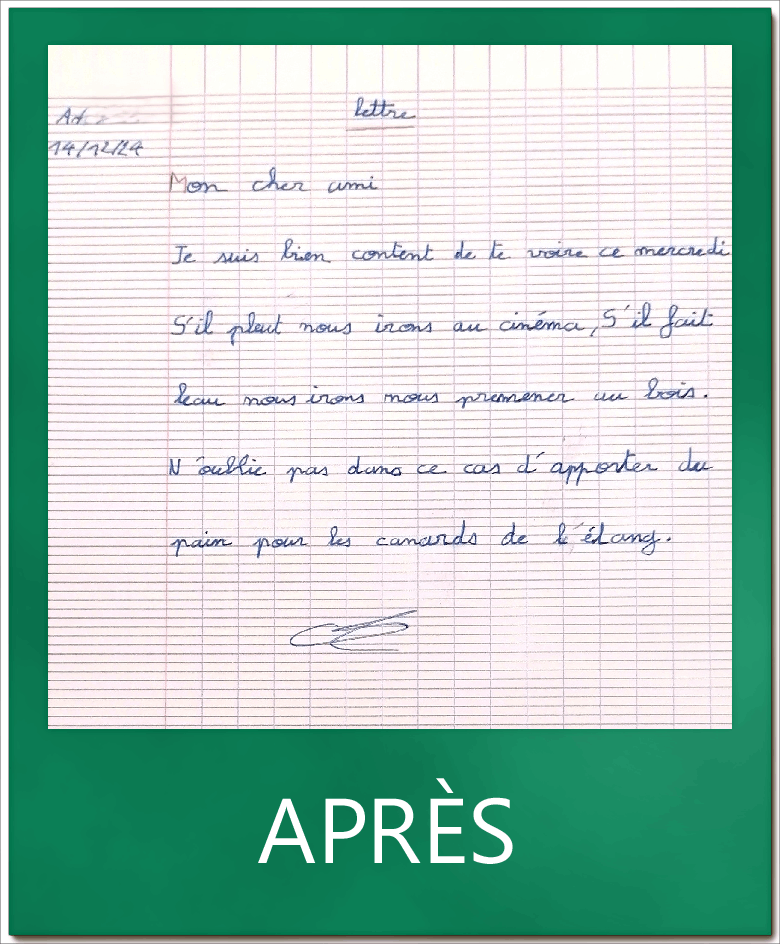 lettre
14/12/24
Mon cher ami
Je suis bien content de te voire ce mercredi
S'il pleut nous irons au cinéma, S'il fait
beau nous irons nous promener au bois.
N'oublie pas dans ce cas d'apporter du
pain pour les canards de l'étang.
APRÈS